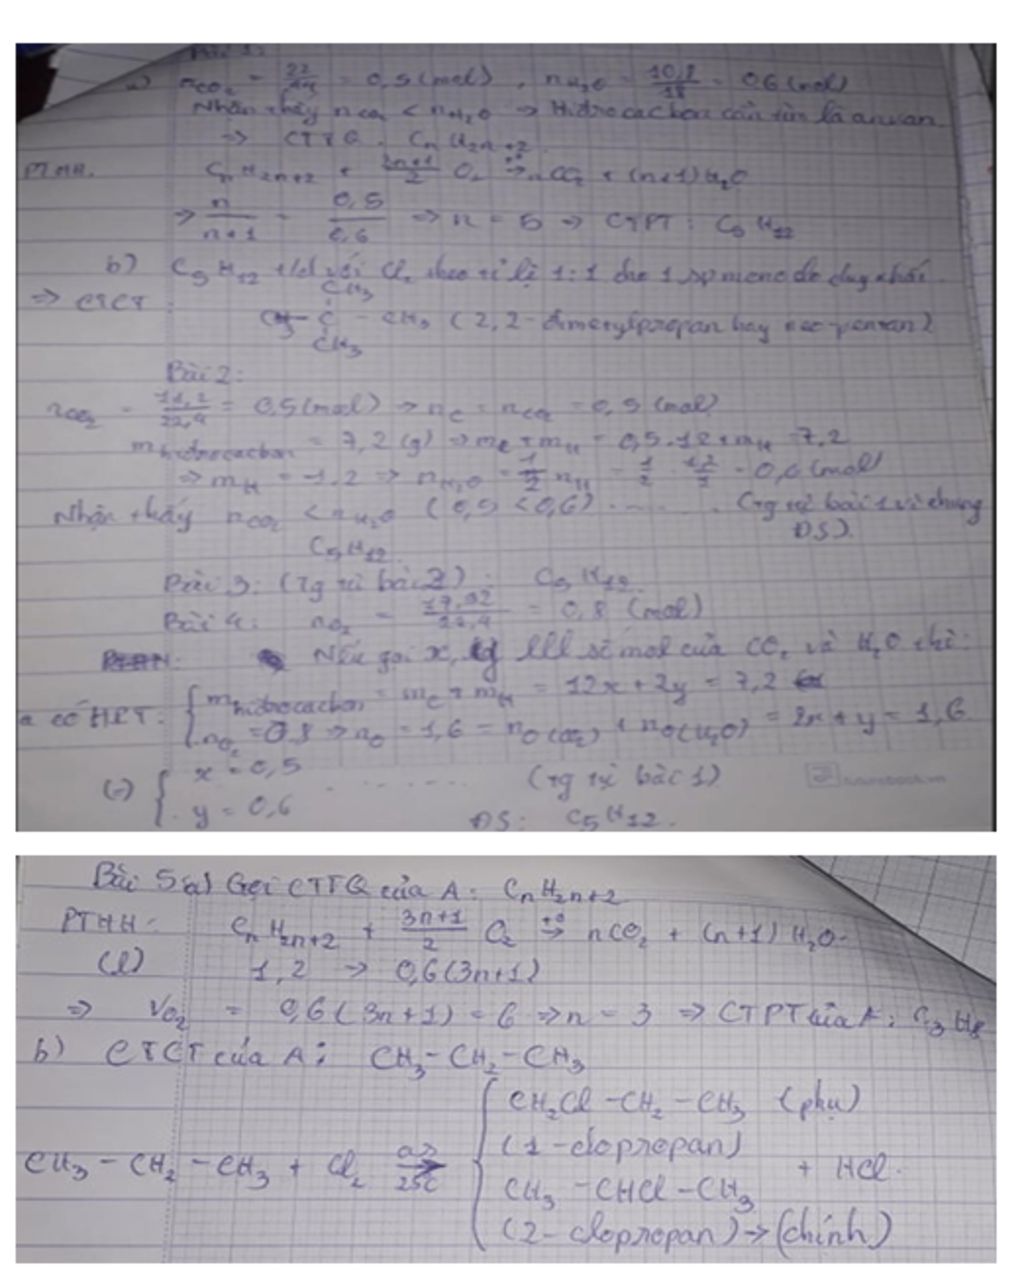 Bài 1:
a) nCO₂ = 22/44 = 0,5 (mol), nH₂O = 10,8/18 = 0,6 (mol)
Nhận thấy nCO₂ < nH₂O → Hidrocacbon cần tìm là ankan
⇒ CTTQ: CnH2n+2
PTHH. CnH2n+2 + 3n+1/2 O₂ →t° nCO₂ + (n+1)H₂O
⇒ n/n+1 = 0,5/0,6 ⇒ n = 5 ⇒ CTPT: C₅H₁₂
b) C₅H₁₂ t/d với Cl₂ theo tỉ lệ 1:1 cho 1 sp mono do duy nhất
CH₃
⇒ CTCT: CH₃ - C - CH₃ (2,2-đimetylpropan hay neo-pentan)
CH₃
Bài 2:
nCO₂ = 11,2/22,4 = 0,5 (mol) → nC = nCO₂ = 0,5 (mol)
m hidrocacbon = 7,2 (g) ⇒ mC + mH = 0,5.12 + mH = 7,2
⇒ mH = 1,2 ⇒ nH₂O = 1/2 nH = 1/2 . 1,2/1 = 0,6 (mol)
Nhận thấy nCO₂ < nH₂O (0,5 < 0,6) ...... (Tg tự bài 1 vì chung
ĐS).
C₅H₁₂.
Bài 3: (Tg tự bài 2): C₅H₁₂.
Bài 4: nO₂ = 17,92/22,4 = 0,8 (mol)
Nếu gọi x, y lll số mol của CO₂ và H₂O thì:
a có HPT: { m hidrocacbon = mC + mH = 12x + 2y = 7,2
nO₂ = 0,8 ⇒ nO = 1,6 = nO(CO₂) + nO(H₂O) = 2x + y = 1,6
(=) { x = 0,5 ...... (Tg tự bài 1)
y = 0,6 ĐS: C₅H₁₂.
Bài 5: a) Gọi CTTQ của A: CnH2n+2
PTHH: CnH2n+2 + 3n+1/2 O₂ →t° nCO₂ + (n+1)H₂O.
(l) 1,2 → 0,6(3n+1)
⇒ VO₂ = 0,6(3n+1) = 6 ⇒ n = 3 ⇒ CTPT của A: C₃H₈
b) CTCT của A: CH₃-CH₂-CH₃
CH₂Cl-CH₂-CH₃ (phụ)
(1-clopropan)
CH₃-CH₂-CH₃ + Cl₂ →as 25C { + HCl.
CH₃-CHCl-CH₃
(2-clopropan) → (chính)